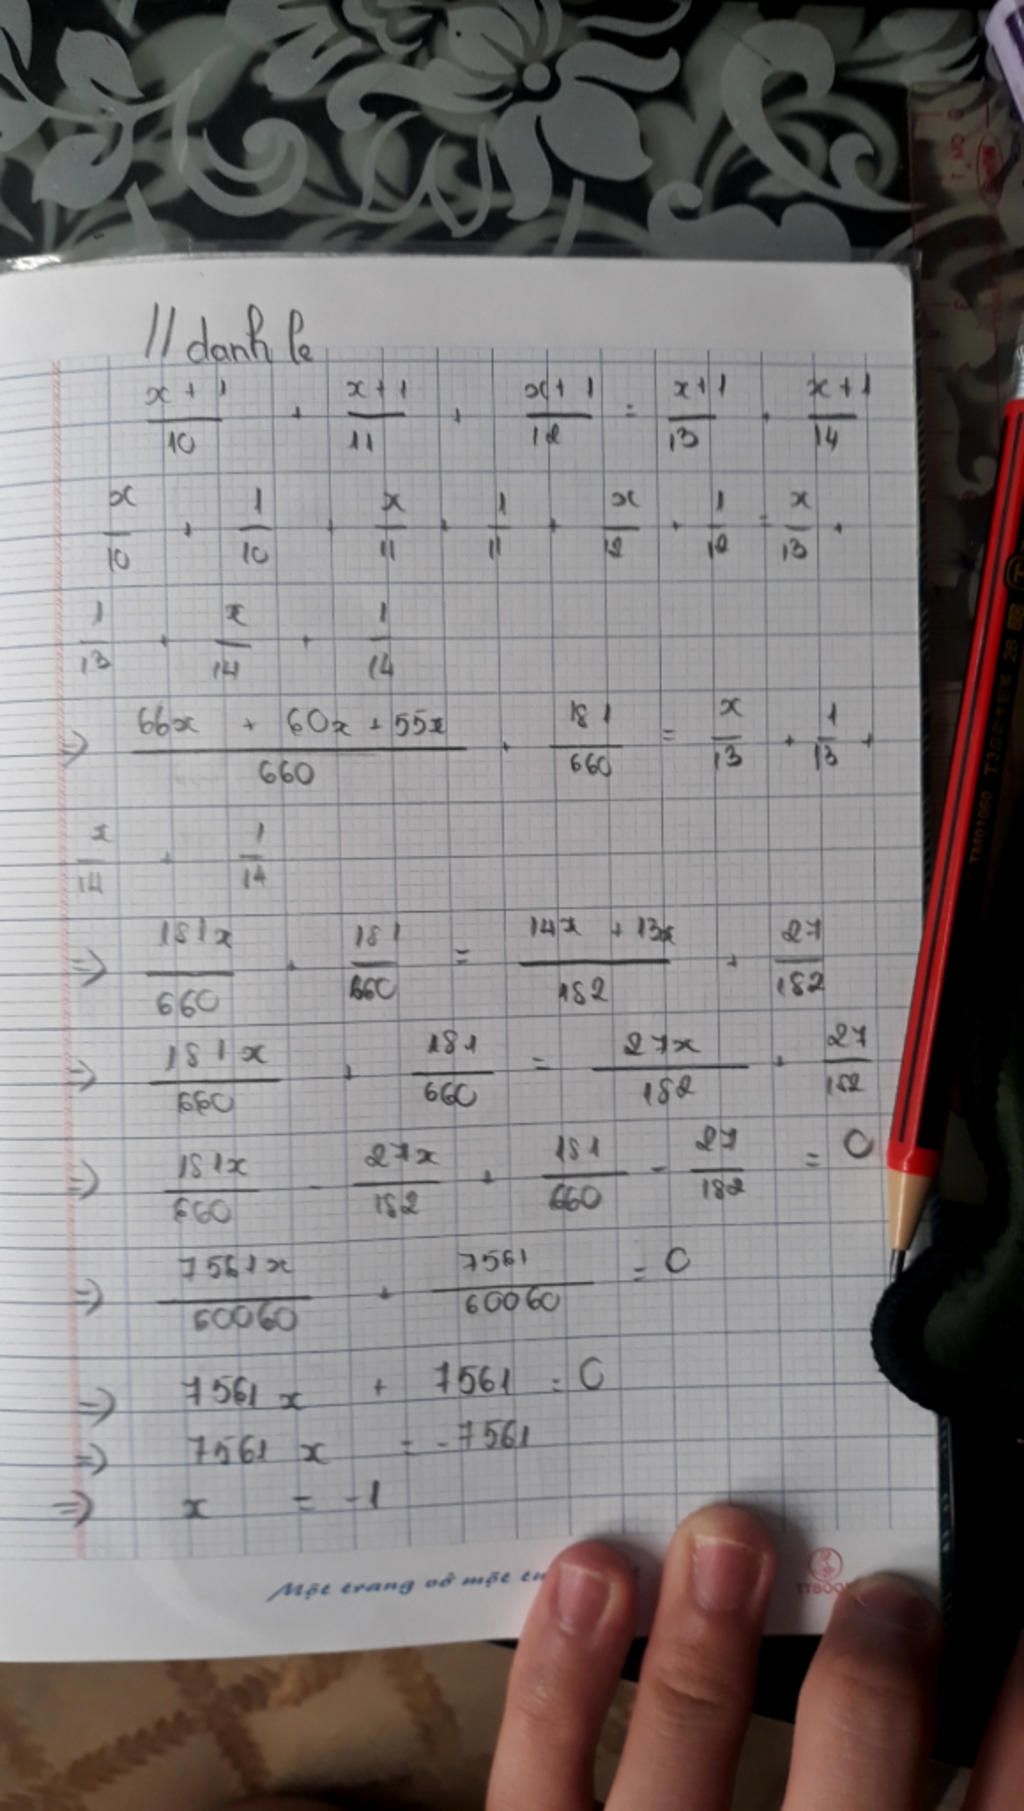 // danh le
x + 1/10 + x + 1/11 + x + 1/12 = x + 1/13 + x + 1/14
x/10 + 1/10 + x/11 + 1/11 + x/12 + 1/12 = x/13 +
1/13 + x/14 + 1/14
=> 66x + 60x + 55x/660 + 181/660 = x/13 + 1/13 +
x/14 + 1/14
=> 181x/660 + 181/660 = 14x + 13x/182 + 27/182
=> 181x/660 + 181/660 = 27x/182 + 27/182
=> 181x/660 - 27x/182 + 181/660 - 27/182 = 0
=> 7561x/60060 + 7561/60060 = 0
=> 7561x + 7561 = 0
=> 7561x = -7561
=> x = -1
Một trang vở một
TM01060 T30BETEE 2B